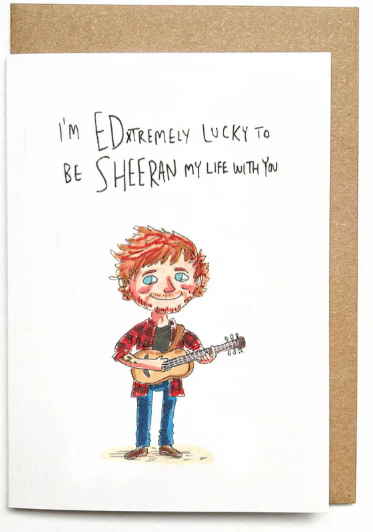 I'M EDXTREMELY LUCKY TO
BE SHEERAN MY LIFE WITH YOU